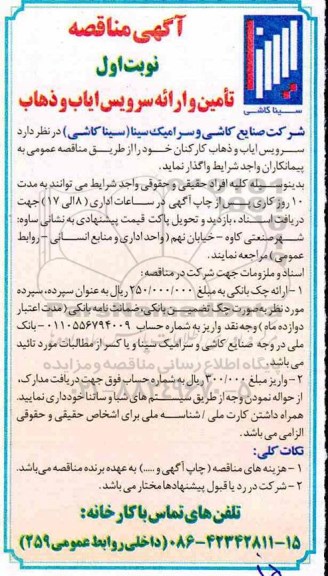 آگهی مناقصه
نوبت اول
تأمین و ارائه سرویس ایاب و ذهاب
سینا کاشی
شرکت صنایع کاشی و سرامیک سینا (سینا کاشی) در نظر دارد
سرویس ایاب و ذهاب کارکنان خود را از طریق مناقصه عمومی به
پیمانکاران واجد شرایط واگذار نماید.
بدینوسیله کلیه افراد حقیقی و حقوقی واجد شرایط می توانند به مدت
۱۰ روز کاری پس از چاپ آگهی در ساعات اداری (۸ الی ۱۷) جهت
دریافت اسناد، بازدید و تحویل پاکت قیمت پیشنهادی به نشانی ساوه:
شهر صنعتی کاوه – خیابان نهم (واحد اداری و منابع انسانی – روابط
عمومی) مراجعه نمایند.
اسناد و ملزومات جهت شرکت در مناقصه:
۱- ارائه چک بانکی به مبلغ ۲۵۰/۰۰۰/۰۰۰ ریال به عنوان سپرده، سپرده
مورد نظر به صورت چک تضمین بانکی، ضمانت نامه بانکی (مدت اعتبار
دوازده ماه) وجه نقد واریز به شماره حساب ۰۱۱۰۵۵۶۷۹۴۰۰۹ بانک
ملی در وجه صنایع کاشی و سرامیک سینا و یا کسر از مطالبات مورد تائید
می باشد.
۲- واریز مبلغ ۲۰۰/۰۰۰ ریال به شماره حساب فوق جهت دریافت مدارک،
از حواله نمودن وجه از طریق سیستم های شبا و ساتنا خودداری نمایید.
همراه داشتن کارت ملی / شناسه ملی برای اشخاص حقیقی و حقوقی
الزامی می باشد.
نکات کلی:
۱- هزینه های مناقصه (چاپ آگهی و .....) به عهده برنده مناقصه می باشد.
۲- شرکت در رد یا قبول پیشنهادها مختار می باشد.
تلفن های تماس با کارخانه:
۱۵-۰۸۶-۴۲۳۴۲۸۱۱ (داخلی روابط عمومی ۲۵۹)